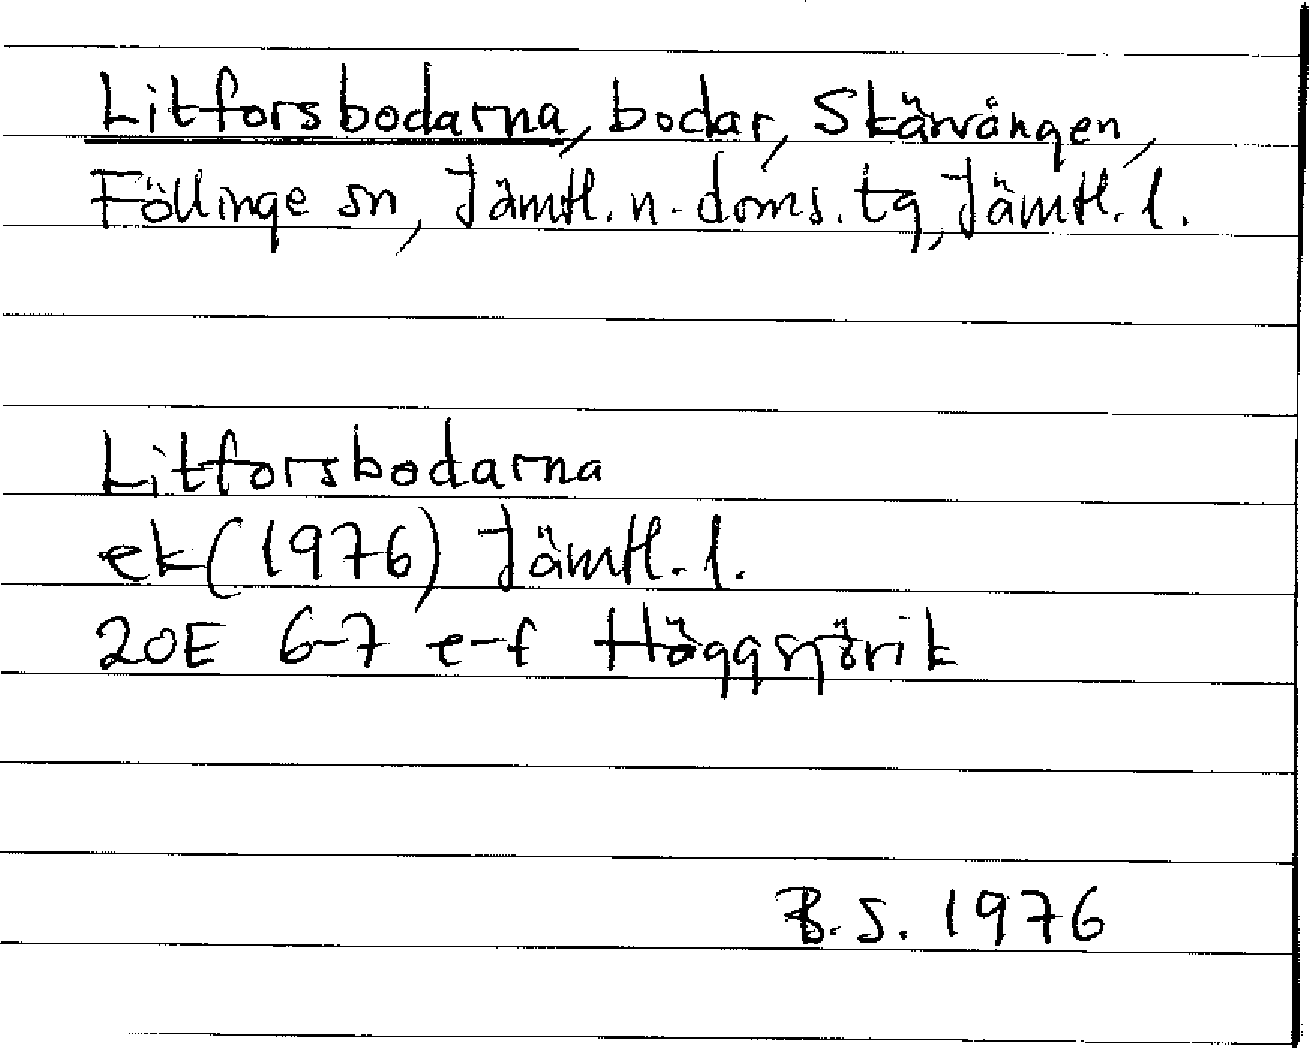 Litforsbodarna, bodar, Skärvången,
Föllinge sn, Jämtl. n. doms. tg, Jämtl. l.
Litforsbodarna
ek (1976) Jämtl. l.
20E 6-7 e-f Häggsjövik
B.S. 1976